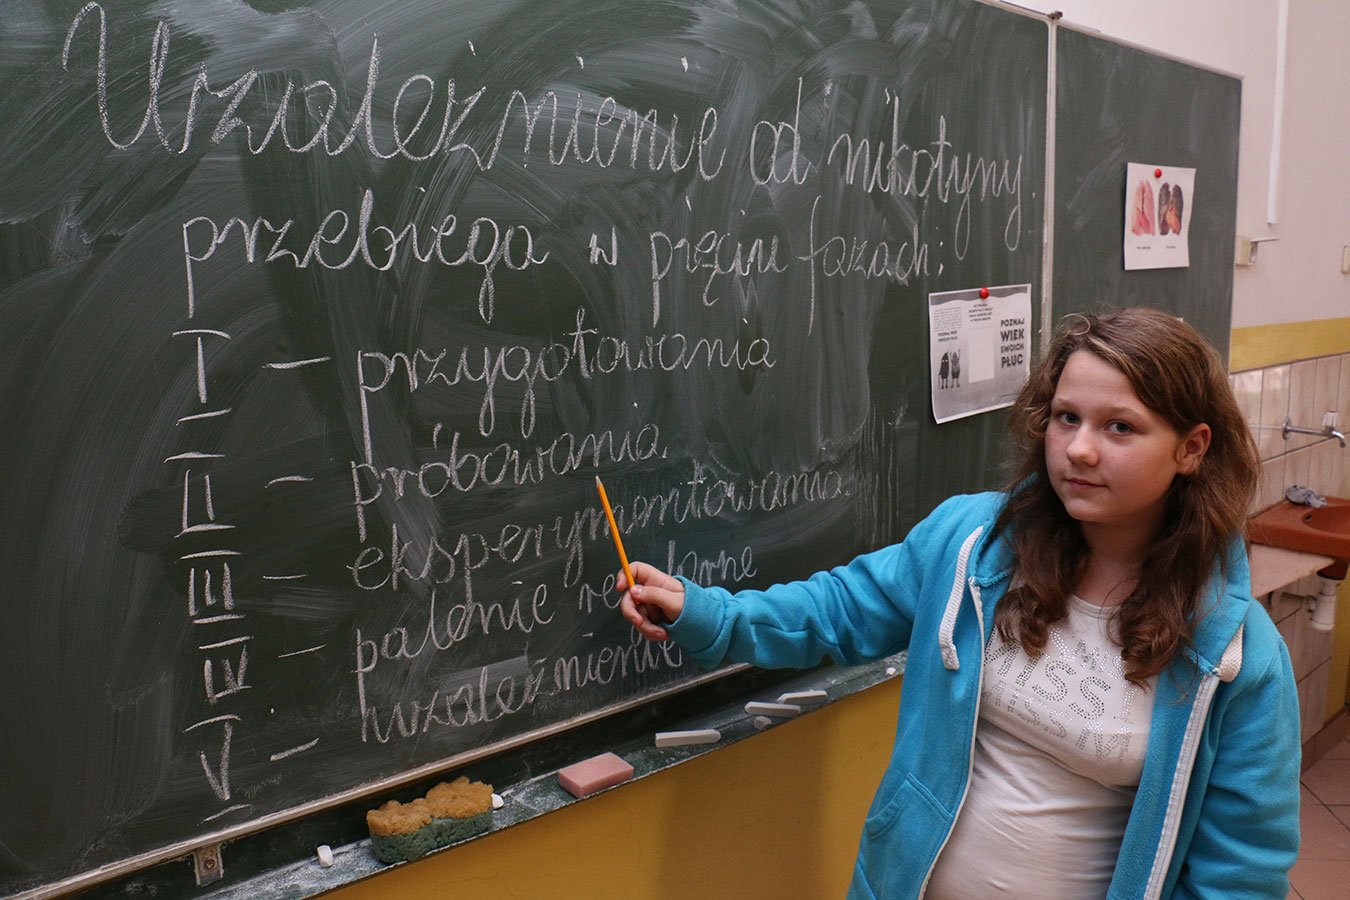 Uzależnienie od nikotyny
przebiega w pięciu fazach:
I - przygotowania
II - próbowania
III - eksperymentowania
IV - palenie
V - uzależnienie
POZNAJ
WIEK
SWOICH
PŁUC
MISS